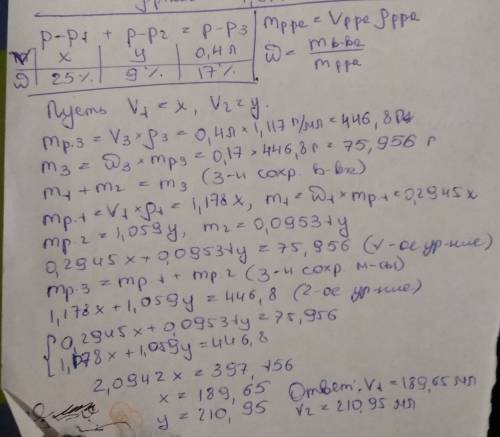 р-р1 + р-р2 = р-р3
V x y 0,4 л
ω 25% 9% 17%
mр-ра = Vр-ра ρр-ра
ω = mв-ва / mр-ра
Пусть V1 = x, V2 = y.
mр.3 = V3 × ρ3 = 0,4л × 1,117 г/мл = 446,8 г
m3 = ω3 × mр3 = 0,17 × 446,8 г = 75,956 г
m1 + m2 = m3 (З-н сохр. в-ва)
mр.1 = V1 × ρ1 = 1,178x, m1 = ω1 × mр.1 = 0,2945x
mр.2 = 1,059y, m2 = 0,09531y
0,2945x + 0,09531y = 75,956 (1-ое ур-ние)
mр.3 = mр.1 + mр.2 (З-н сохр. м-сы)
1,178x + 1,059y = 446,8 (2-ое ур-ние)
0,2945x + 0,09531y = 75,956
1,178x + 1,059y = 446,8
2,0942x = 397,156
x = 189,65 Ответ: V1 = 189,65 мл
y = 210,95 V2 = 210,95 мл